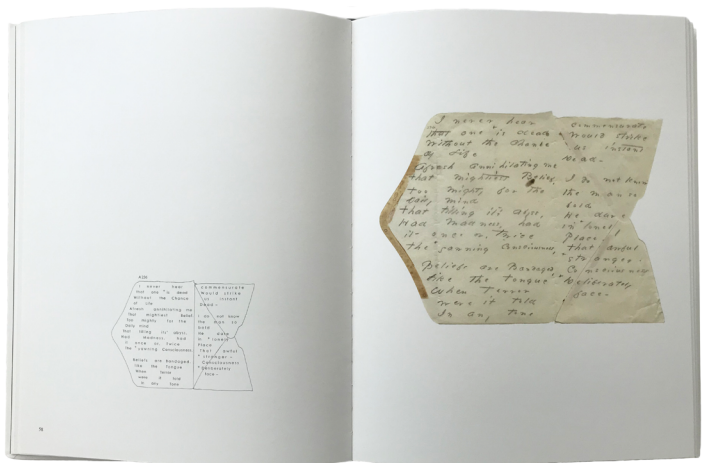 I never hear
that one is dead
Without the Chance
of Life
Afresh annihilating me
That mightiest Belief,
Too mighty for the
Daily mind
That tilling its abyss,
Had Madness, had
it once or, Twice
The yawning Consciousness,
Beliefs are Bandaged,
like the Tongue
When Terror
were it told
In any Tone
commensurate
Would strike
us instant
Dead -
I do not know
the man so
bold
He dare
in lonely
Place
That awful
stranger -
Consciousness
Deliberately
face -
I never hear
that one is dead
Without the Chance
of Life
Afresh annihilating me
That mightiest Belief,
Too mighty for the
Daily mind
That tilling it's abyss,
Had Madness, had
it once or, Twice
The yawning Consciousness,
Beliefs are Bandaged,
like the Tongue
When Terror
were it told
In any Tone
commensurate
Would strike
us instant
Dead -
I do not know
the man so
bold
He dare
in lonely
Place
That awful
stranger -
Consciousness
Deliberately
face -